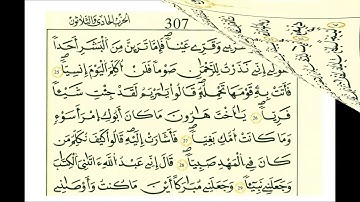 الحزب الحادي والثلاثون
307
وَقَرِّے عَيْناً فَإِمَّا تَرَيِنَّ مِنَ ٱلْبَشَرِ أَحَداً
إِنِّے نَذَرْتُ لِلرَّحْمَٰنِ صَوْماً فَلَنْ أُكَلِّمَ ٱلْيَوْمَ إِنسِيّاً 25
فَأَتَتْ بِهِۦ قَوْمَهَا تَحْمِلُهُۥ قَالُوا۟ يَٰمَرْيَمُ لَقَدْ جِئْتِ شَيْـٔاً
فَرِيّاً 26 يَٰٓأُخْتَ هَٰرُونَ مَا كَانَ أَبُوكِ ٱمْرَأَ سَوْءٍ
وَمَا كَانَتْ أُمُّكِ بَغِيّاً 27 فَأَشَارَتْ إِلَيْهِ قَالُوا۟ كَيْفَ نُكَلِّمُ مَن
كَانَ فِے ٱلْمَهْدِ صَبِيّاً 28 قَالَ إِنِّے عَبْدُ ٱللَّهِ ءَاتَىٰنِےَ ٱلْكِتَٰبَ
وَجَعَلَنِے نَبِيٓـٔاً 29 وَجَعَلَنِے مُبَٰرَكاً أَيْنَ مَا كُنتُ وَأَوْصَٰنِے